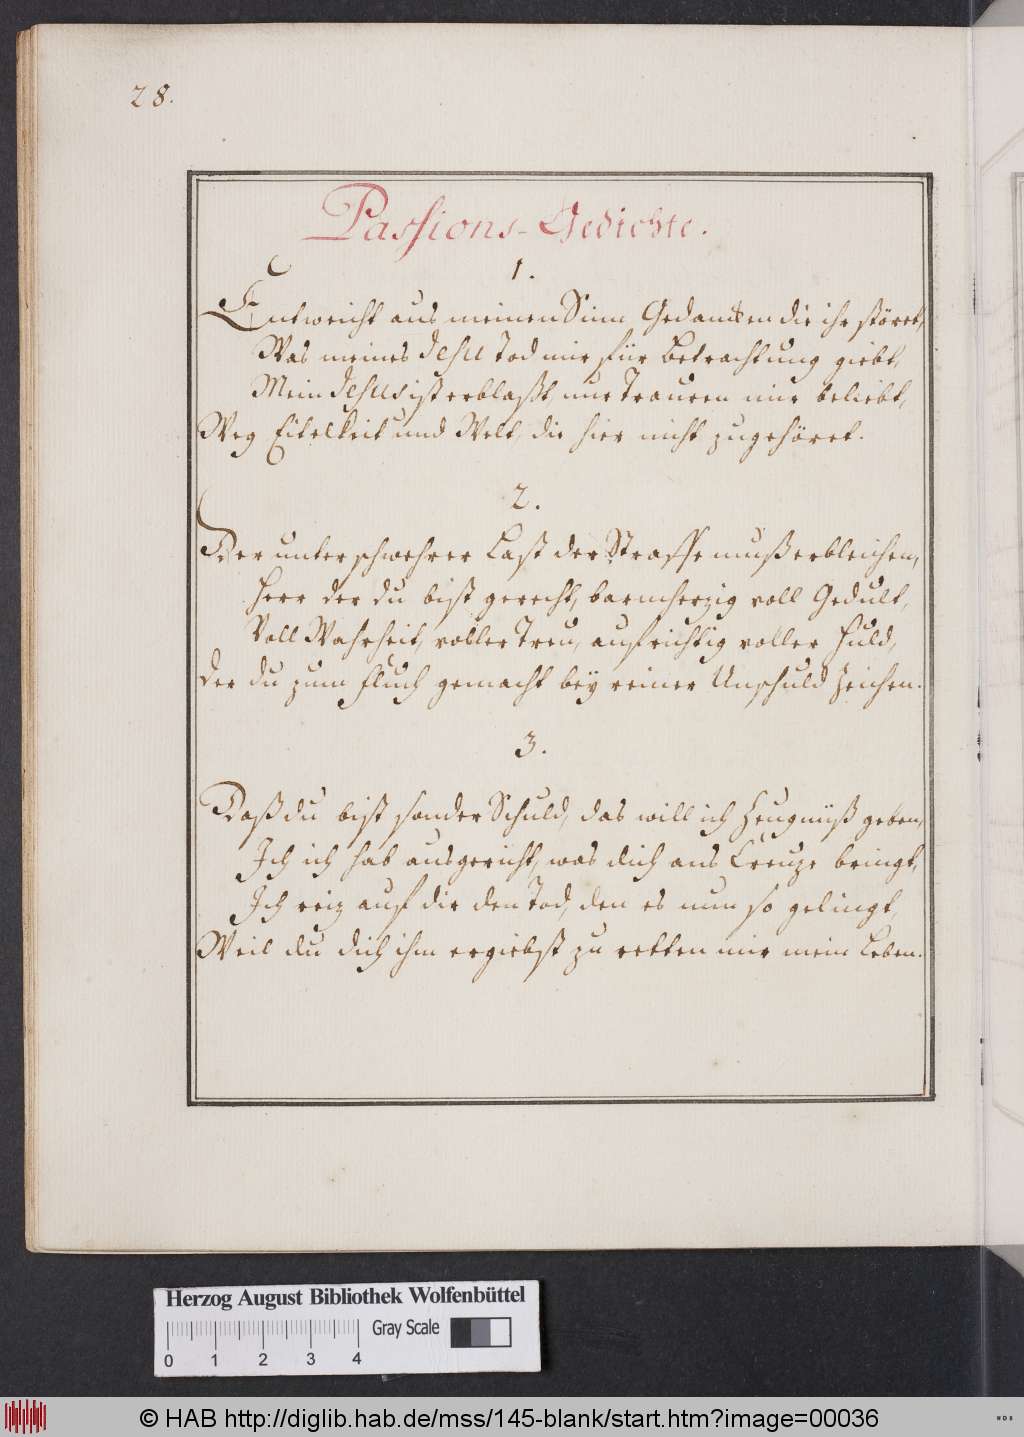 28.
Passions-Gedichte.
1.
Entweicht aus meinen Sinn Gedancken die ihr störet,
Was meines Jesu Tod mir für Betrachtung giebt,
Mein Jesus ist erblaßt, nur Trauren mir beliebt,
Weg Eitelkeit und Welt, die hier nicht zugehöret.
2.
Der unter schwehrer Last der Straffe muß erbleichen,
Herr der du bist gerecht, barmherzig voll Gedult,
Voll Wahrheit, voller Treu, aufrichtig voller Huld,
Der du zum Fluch gemacht bey reiner Unschuld Zeichen.
3.
Daß du bist sonder Schuld, das will ich Zeugnüß geben,
Ich ich hab ausgericht, was dich ans Creuze bringt,
Ich reiz auf dir den Tod, den es nun so gelingt,
Weil du dich ihm ergiebst zu retten mir mein Leben.
Herzog August Bibliothek Wolfenbüttel
Gray Scale
0 1 2 3 4
© HAB http://diglib.hab.de/mss/145-blank/start.htm?image=00036